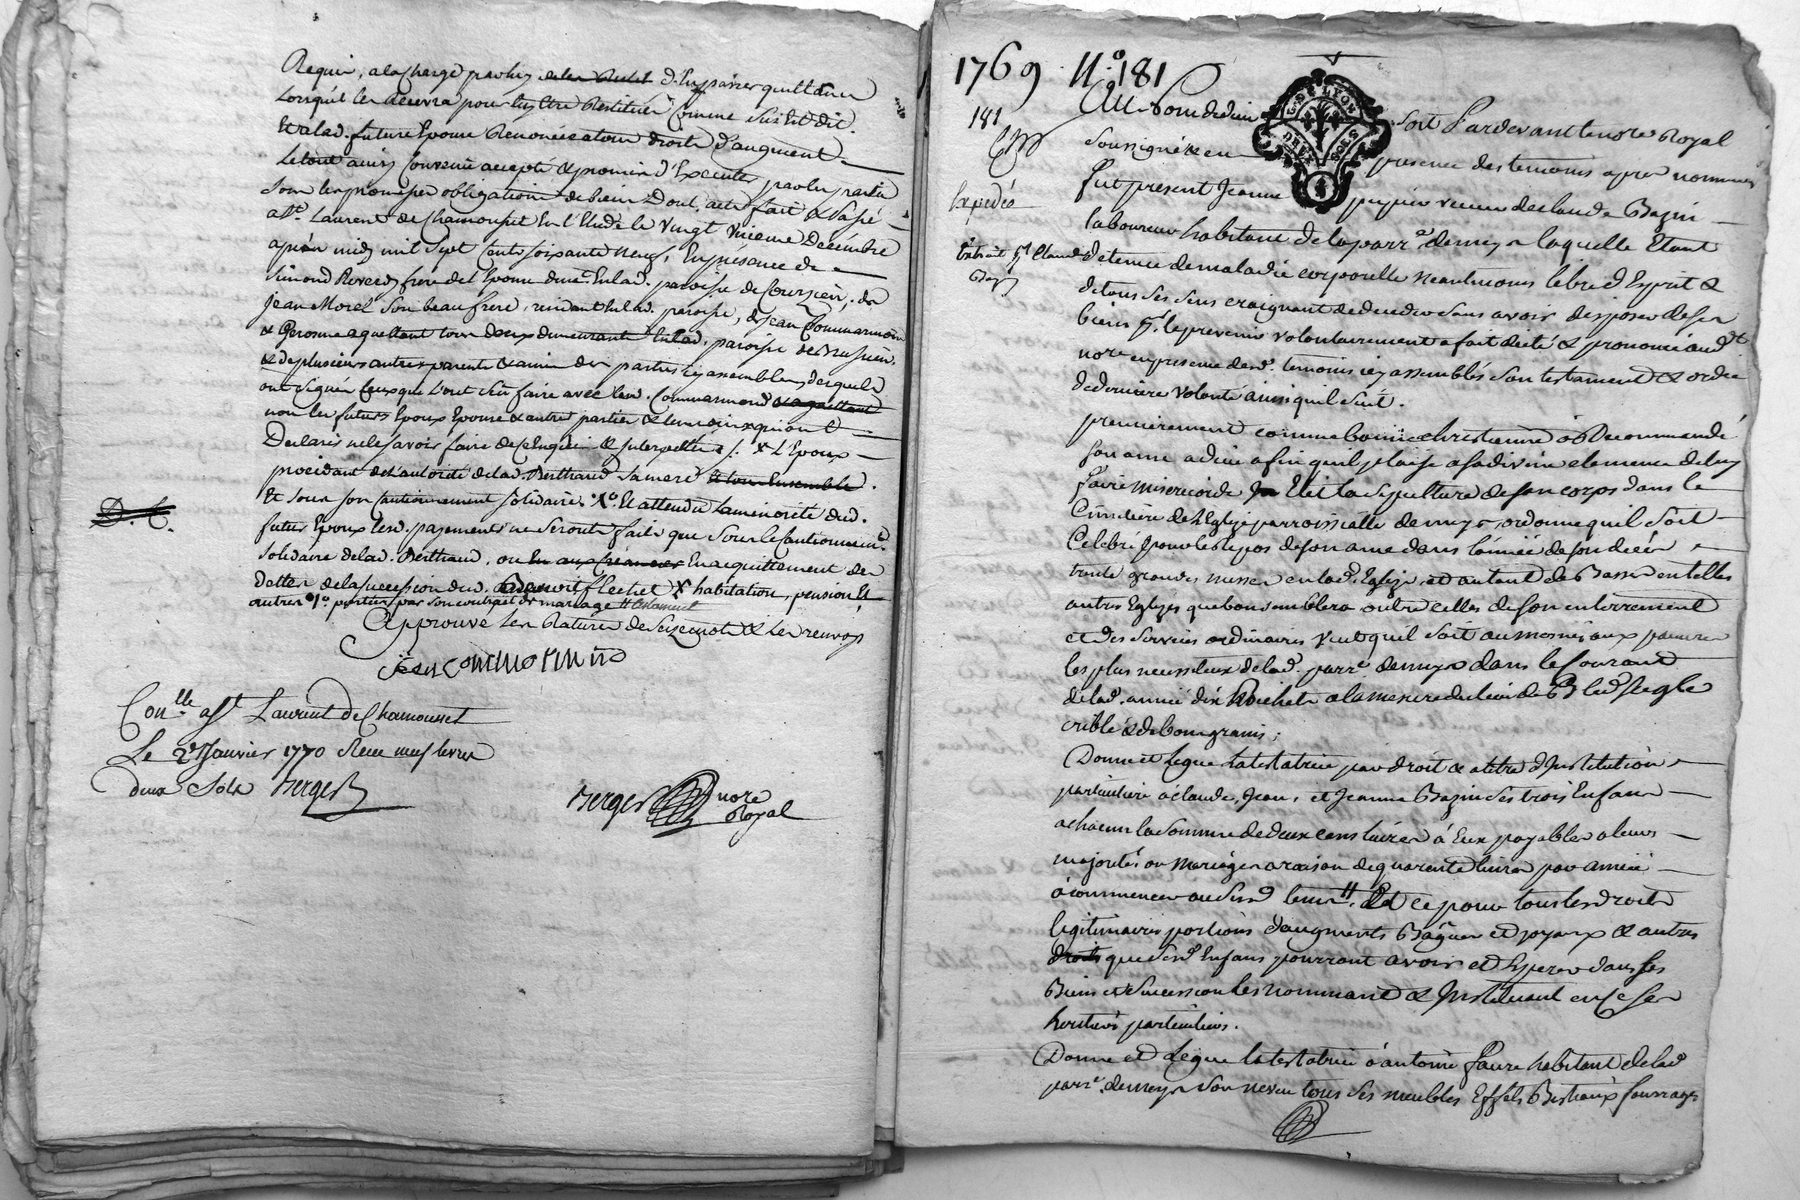 Requis, a la charge par luy d'en passer quittance
lorsqu'il les recevra pour luy être Restitués Comme dit est dit.
Et a lad. future Epouse Renoncée a tous droits d'augment
Le tout ainsy Convenu accepté & promis d'Executer par les parties
sous les promesses obligation de biens Dont acte fait & Passé
a St. Laurent de Chamousset En l'Etude le Vingt Decembre
après midy mil sept Cents soixante neuf, En présence de
Simond frere de l'Epouse paroisse de
Jean Morel son beau frere, résidant lad. paroisse, & Jean Commarmond
tous deux demeurants lad. paroisse de Brussieu
& de plusieurs autres parents & amis des parties icy assemblés, desquels
ont signé ceux qui l'ont sçu faire avec led. Commarmond
non les futurs Epoux Epouse & autres parties & temoins qui ont
Declaré ne le savoir faire de ce Enquis & Interpellés ./. X L'Epoux
procédant de l'autorité de lad. Berthaud sa mere et tous Ensemble.
Et sous son Cautionnement solidaire. Et attendu La minorité dud.
futur Epoux lesd. payements ne seront faits que sous le Cautionnement
solidaire de lad. Berthaud, ou En acquittement des
dettes de la succession dud. flechet X habitation, pension &
autres portés par son contrat de mariage
D. C.
Approuvé Les Ratures de seize mots & les renvoys
jean commarmond
Conlle a St Laurent de Chamousset
Le 2 Janvier 1770 Reçu neuf livres
deux Sols Berger
Berger nore
Royal
1769 N.° 181
181
Expedié
Extrait pr Claude
Bazin
G. DE LYON
DEUX SOLS
Au Nom de dieu Soit Pardevant le nore Royal
soussigné & en presence des temoins apres nommés
fut présent Jeanne veuve de Claude Bazin
laboureur habitante de la parr.e de meys laquelle Etant
detenue de maladie corporelle neantmoins libre d'Esprit &
de tous ses sens craignant de deceder sans avoir disposer de ses
biens pr. le prevenir volontairement a fait dicté & prononcé aud.
nore en presence desd. temoins icy assemblés son testament & ordre
de derniere volonté ainsi qu'il suit.
premierement comme bonne christienne a Recommandé
son ame a dieu afin qu'il plaise a sa divine clemence de luy
faire misericorde Elit la sepulture de son corps dans le
Cimetiere de L'Eglise parroissialle de meys, ordonne qu'il soit
Celebré pour le repos de son ame dans l'année de son decès
trente grandes messes en lad. Eglise, et autant de Basses en telles
autres Eglises que bon semblera outre celles de son enterrement
et des services ordinaires veut qu'il soit aumosnés aux pauvres
les plus necessiteux de lad. parre. de meys dans le Courant
de lad. année dix Bichets a la mesure du lieu de Bled seigle
criblé & de bon grains;
Donne et Legue la testatrice par droit & a titre d'Institution
particuliere a claude, Jean, et Jeanne Bazin ses trois Enfans
a chacun la somme de deux cens livres à Eux payables a leurs
majorités ou mariages a raison de quarente livres par année
a commencer Et ce pour tous les droits
légitimaires portions d'augments Bagues et joyaux & autres
droits que sesd. Enfans pourront avoir et Esperer dans ses
Biens et succession Les nommant & Instituant en ce ses
heritiers particuliers.
Donne et Legue la testatrice a antoine faure habitant de lad.
parre. de meys son neveu tous ses meubles Effets Bestiaux fourrages